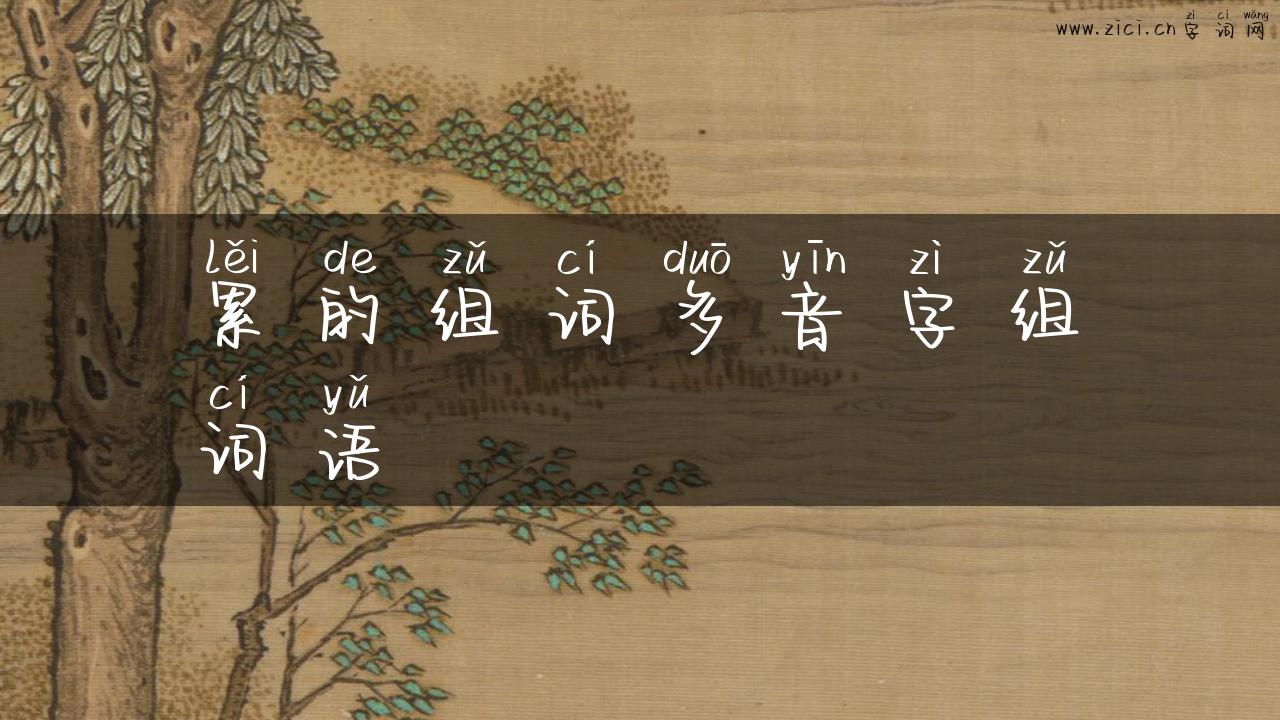 zì cí wǎng
www.zici.cn 字 词 网
lěi de zǔ cí duō yīn zì zǔ
累 的 组 词 多 音 字 组
cí yǔ
词 语